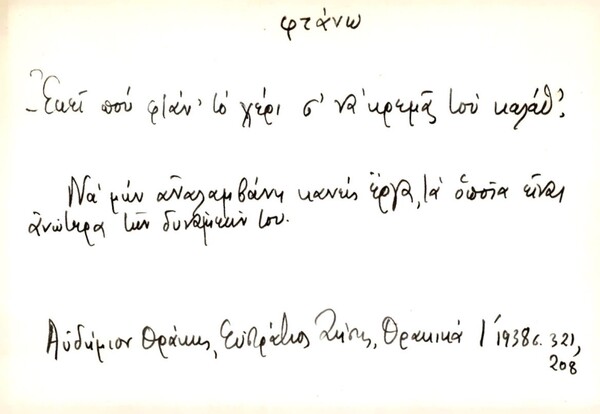 φτάνω
- Ἐκεῖ πού φτάν' τό χέρι σ' νά κρεμᾶς τού καλάθ'.
Νά μήν ἀναλαμβάνη κανείς ἔργα, τά ὁποῖα εἶναι
ἀνώτερα τῶν δυνάμεών του.
Αὐδήμιον Θράκης, Εὐστράτιος Ζήσης, Θρακικά 1938 σ. 321,
208